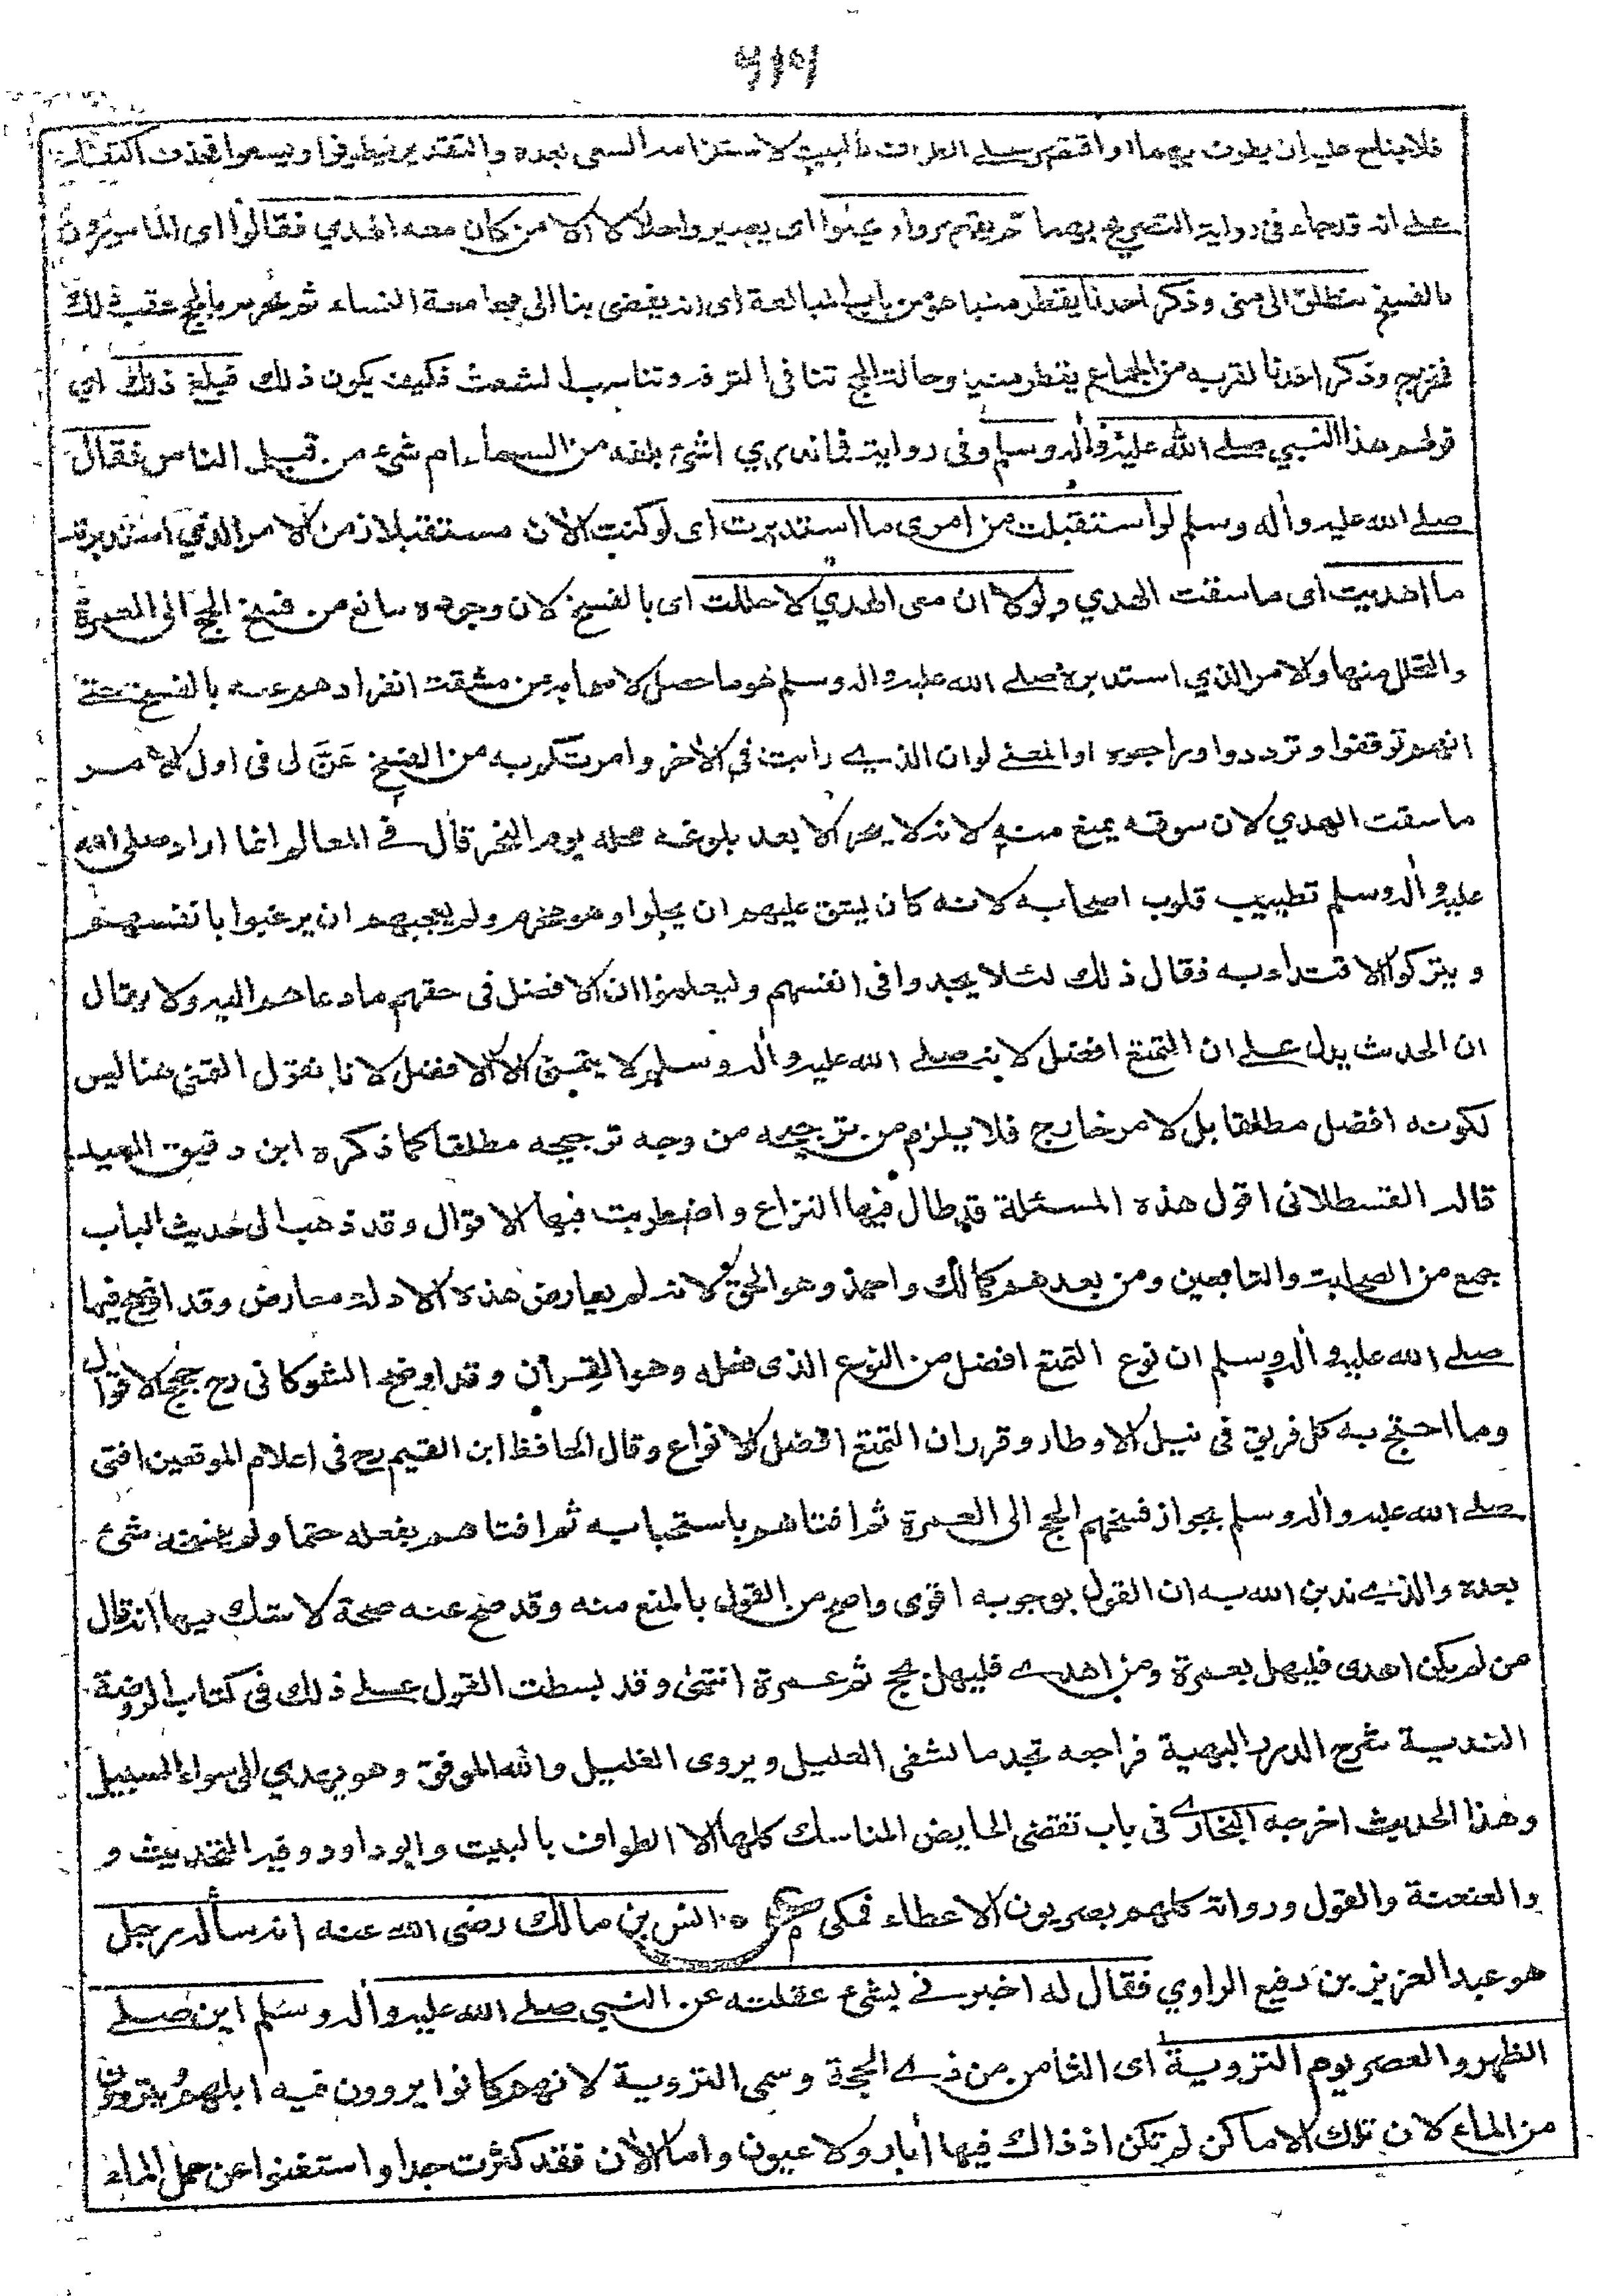 فلا جناح عليه ان يطوف بهما او اقتصر على الطواف بالبيت لاستلزامه السعى بعده والتقدير فيطوفوا ويسعوا فحذف اكتفاء
على انه قد جاء فى رواية التصريح بهما ثم يقصروا ويحلوا اى يصيروا حلالا الا من كان معه الهدي فقالوا اى المأمورون
بالفسخ ننطلق الى منى وذكر احدنا يقطر منيا هو من باب المبالغة اى انه يفضى بنا الى مجامعة النساء ثم نحرم بالحج عقب ذلك
فنخرج وذكر احدنا لقربه من الجماع يقطر منيا وحالة الحج تنافى الترفه وتناسب الشعث فكيف يكون ذلك فبلغ ذلك اى
قولهم هذا النبي صلے الله عليه واٰله وسلم وفى رواية فما ندرى اشئ بلغه من السماء ام شئ من قبل الناس فقال
صلے الله عليه واٰله وسلم لو استقبلت من امرى ما استدبرت اى لو كنت الاٰن مستقبلا زمن الامر الذي استدبرته
ما اهديت اى ما سقت الهدي ولولا ان معى الهدي لاحللت اى بالفسخ لان وجوده مانع من فسخ الحج الى العمرة
والتحلل منها والامر الذي استدبره صلے الله عليه واٰله وسلم هو ما حصل لاصحابه من مشقة انفرادهم عنه بالفسخ حتے
انهم توقفوا وترددوا وراجعوه او المعنے لو ان الذي رايت فى الاٰخر وامرتكم به من الفسخ عَنَّ لى فى اول الامر
ما سقت الهدي لان سوقه يمنع منه لانه لا ينحر الا بعد بلوغه محله يوم النحر قال فے المعالم انما اراد صلى الله
عليه واٰله وسلم تطييب قلوب اصحابه لانه كان يشق عليهم ان يحلوا وهو محرم ولم يعجبهم ان يرغبوا بانفسهم
ويتركوا الاقتداء به فقال ذلك لئلا يجدوا فى انفسهم وليعلموا ان الافضل فى حقهم ما دعاهم اليه ولا يقال
ان الحديث يدل على ان التمتع افضل لانه صلے الله عليه واٰله وسلم لا يتمنى الا الافضل لانا نقول التمنى هنا ليس
لكونه افضل مطلقا بل لامر خارج فلا يلزم من ترجيحه من وجه ترجيحه مطلقا كما ذكره ابن دقيق العيد
قاله القسطلانى اقول هذه المسئلة قد طال فيها النزاع واضطربت فيها الاقوال وقد ذهب الى حديث الباب
جمع من الصحابة والتابعين ومن بعدهم كمالك واحمد وهو الحق لانه لم يعارض هذه الادلة معارض وقد اوضح فيها
صلے الله عليه واٰله وسلم ان نوع التمتع افضل من النوع الذى فعله وهو القِران وقد اوضح الشوكانى رح حجج الاقوال
وما احتج به كل فريق فى نيل الاوطار وقرر ان التمتع افضل الانواع وقال الحافظ ابن القيم رح فى اعلام الموقعين افتى
صلے الله عليه واٰله وسلم بجواز فسخهم الحج الى العمرة ثم افتاهم باستحبابه ثم افتاهم بفعله حتما ولم ينسخه شئ
بعده والذي ندين الله به ان القول بوجوبه اقوى واصح من القول بالمنع منه وقد صح عنه صحة لا شك فيها انه قال
من لم يكن اهدى فليهل بعمرة ومن اهدى فليهل بحج ثم عمرة انتهى وقد بسطت القول علے ذلك فى كتاب الروضة
الندية شرح الدرر البهية فراجعه تجد ما لشفى العليل ويروى الغليل والله الموفق وهو يهدي الى سواء السبيل
وهذا الحديث اخرجه البخارے فى باب تقضى الحايض المناسك كلها الا الطواف بالبيت وابو داود وفيه التحديث و
والعنعنة والقول ورواته كلهم بصريون الا عطاء فمكى انس بن مالك رضى الله عنه انه سأله رجل
هو عبد العزيز بن رفيع الراوي فقال له اخبرنے بشئ عقلته عن النبي صلے الله عليه واٰله وسلم اين صلے
الظهر والعصر يوم التروية اى الثامن من ذے الحجة وسمى التروية لانهم كانوا يروون فيه ابلهم ويتروون
من الماء لان تلك الاماكن لم تكن اذ ذاك فيها اٰبار ولا عيون واما الاٰن فقد كثرت جدا واستغنوا عن حمل الماء